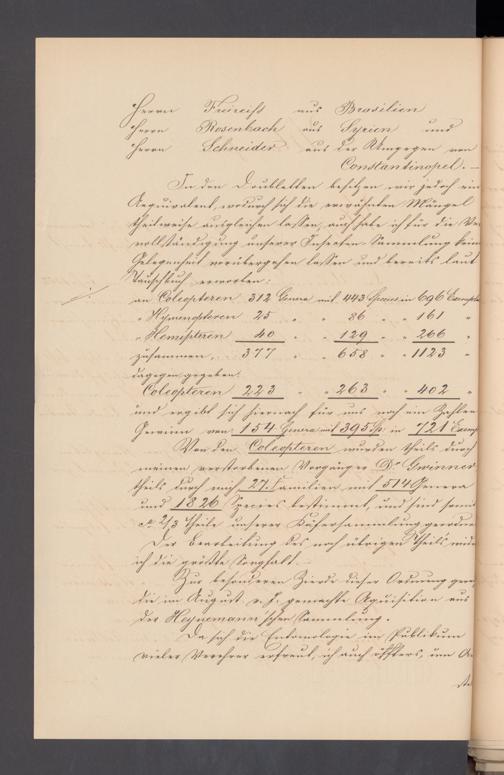 Herrn Freireiss aus Brasilien
Herrn Rosenbach aus Syrien und
Herrn Schneider aus der Umgegen von
Constantinopel. –
In den Doubletten besitzen wir jedoch ein
Aequivalent, wodurch sich die erwähnten Mängel
theilweise ausgleichen lassen, auch habe ich für die Ver
vollständigung unserer Insecten Sammlung keine
Gelegenheit vorübergehen lassen und bereits laut
Tauschbuch erworben:
an Coleopteren 312 Genera mit 443 Species in 696 Exempla
" Hymenopteren 25 " " 86 " " 161 "
" Hemipteren 40 " " 129 " " 266 "
zusammen, 377 " " 658 " " 1123 "
dagegen gegeben
Coleopteren 223 " " 263 " " 402 "
und ergibt sich hiernach für uns noch ein Zahlen
Gewinn von 154 Genera mit 395 Sp. in 721 Exemp
Von den Coleopteren wurden theils durch
meinen verstorbenen Vorgänger Dr. Gwinner
theils durch mich 27. Familien mit 514 Genera
und 1826 Species bestimmt, und sind somit
2/3 Theile unserer Käfersammlung geordne
Der Bearbeitung des noch übrigen Theils widme
ich die größte Sorgfalt. –
Zur besonderen Zierde dieser Ordnung
die im August v. J. gemachte Aquisition aus
der Heynemann'schen Sammlung.
Da sich die Entomologie im Publikum
vieler Verehrer erfreut, ich auch öfters, um